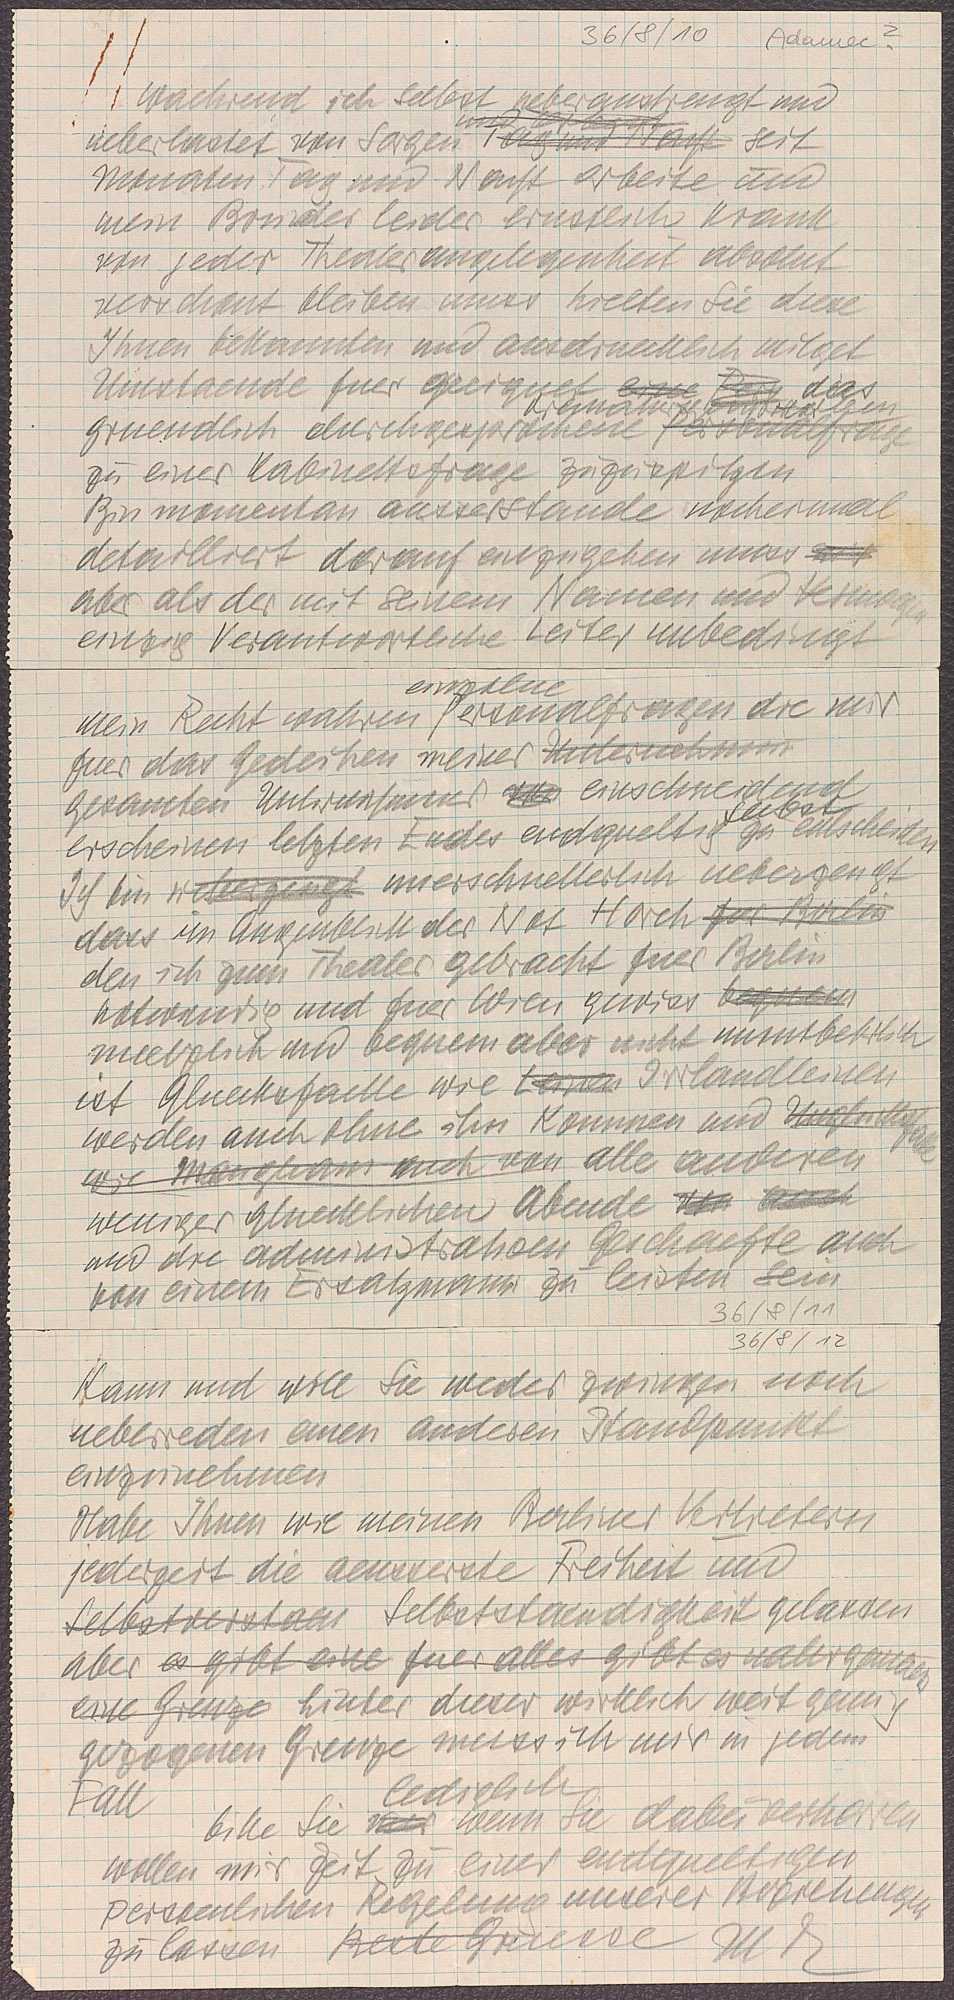 36/8/10 Adamec?
waehrend ich selbst ueberanstrengt und
ueberlastet von Sorgen Tag und Nacht seit
Monaten Tag und Nacht arbeite und
mein Bruder leider ernstlich krank
von jeder Theaterangelegenheit absolut
verschont bleiben muss hielten Sie diese
Ihnen bekannten und ausdruecklich
Umstaende fuer geeignet eine Pers das
gruendlich durchgesprochene Personalfrage
zu einer Kabinettsfrage zuzuspitzen
Bin momentan ausserstande nocheinmal
detailliert darauf einzugehen muss
aber als der mit seinem Namen und Vermoegen
einzig Verantwortliche Leiter unbedingt
einzelne
mein Recht wahren Personalfragen die mir
fuer das Gedeihen meiner Unternehmun
gesamten Unternehmens einschneidend
selbst
erscheinen letzten Endes endgueltig zu entscheiden
Ich bin ueberzeugt unerschuetterlich ueberzeugt
dass im Augenblick der Not Horch fuer Berlin
den ich zum Theater gebracht fuer Berlin
notwendig und fuer Wien gewiss bequem
nuetzlich und bequem aber nicht unentbehrlich
ist Gluecksfaelle wie Leinen Irrlandleinen
werden auch ohne ihn kommen und
wie auch von alle anderen
weniger gluecklichen Abende von auch
und die administrativen Geschaefte auch
von einem Ersatzmann zu leisten sein
36/8/11
36/8/12
Kann und will Sie weder zwingen noch
ueberreden einen anderen Standpunkt
einzunehmen
Habe Ihnen wie meinen Berliner Vertretern
jederzeit die aeusserste Freiheit und
Selbstverstaen Selbststaendigkeit gelassen
aber es gibt eine fuer alles gibt es
eine Grenze hinter dieser wirklich weit genug
gezogenen Grenze muss ich mir in jedem
Fall
lediglich
bitte Sie nur wenn Sie dabei verharren
wollen mir Zeit zu einer endgueltigen
persoenlichen Regelung unserer Beziehungen
zu lassen Beste Gruesse MR